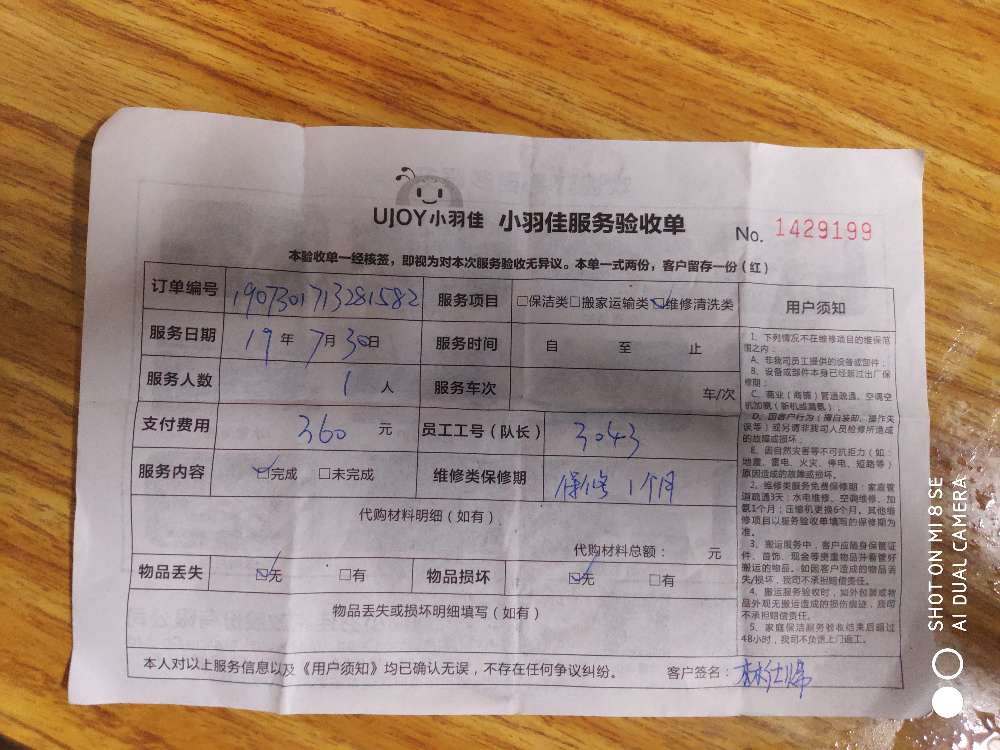 UJOY小羽佳 小羽佳服务验收单 No. 1429199
本验收单一经核签，即视为对本次服务验收无异议。本单一式两份，客户留存一份（红）
订单编号 1907301713281582 服务项目 □保洁类□搬家运输类☑维修清洗类 用户须知
服务日期 19年7月30日 服务时间 自 至 止
服务人数 1人 服务车次 车/次
支付费用 360元 员工工号（队长） 3043
服务内容 ☑完成 □未完成 维修类保修期 保修1个月
代购材料明细（如有）
代购材料总额： 元
物品丢失 ☑无 □有 物品损坏 ☑无 □有
物品丢失或损坏明细填写（如有）
本人对以上服务信息以及《用户须知》均已确认无误，不存在任何争议纠纷。 客户签名：
1、下列情况不在维修项目的维保范
围之内：
A、非我司员工提供的设备或部件；
B、设备或部件本身已经超过出厂保
修期；
C、商业（商铺）管道疏通、空调空
机加氨（新机或漏氨）；
D、因客户行为（擅自装卸、操作失
误等）或另请非我司人员检修所造成
的故障或损坏；
E、因自然灾害等不可抗拒力（如：
地震、雷电、火灾、停电、短路等）
原因造成的故障或损坏。
2、维修类服务免费保修期：家庭管
道疏通3天；水电维修、空调维修、加
氨1个月；压缩机更换6个月。其他维
修项目以服务验收单填写的保修期为
准。
3、搬运服务中，客户应随身保管证
件、首饰、现金等贵重物品并看管好
搬运的物品。如因客户造成的物品丢
失/损坏，我司不承担赔偿责任。
4、搬运服务验收时，如外包装或物
品外观无搬运造成的损伤痕迹，我司
不承担赔偿责任。
5、家庭保洁服务验收结束后超过
48小时，我司不负责上门返工。
SHOT ON MI 8 SE
AI DUAL CAMERA